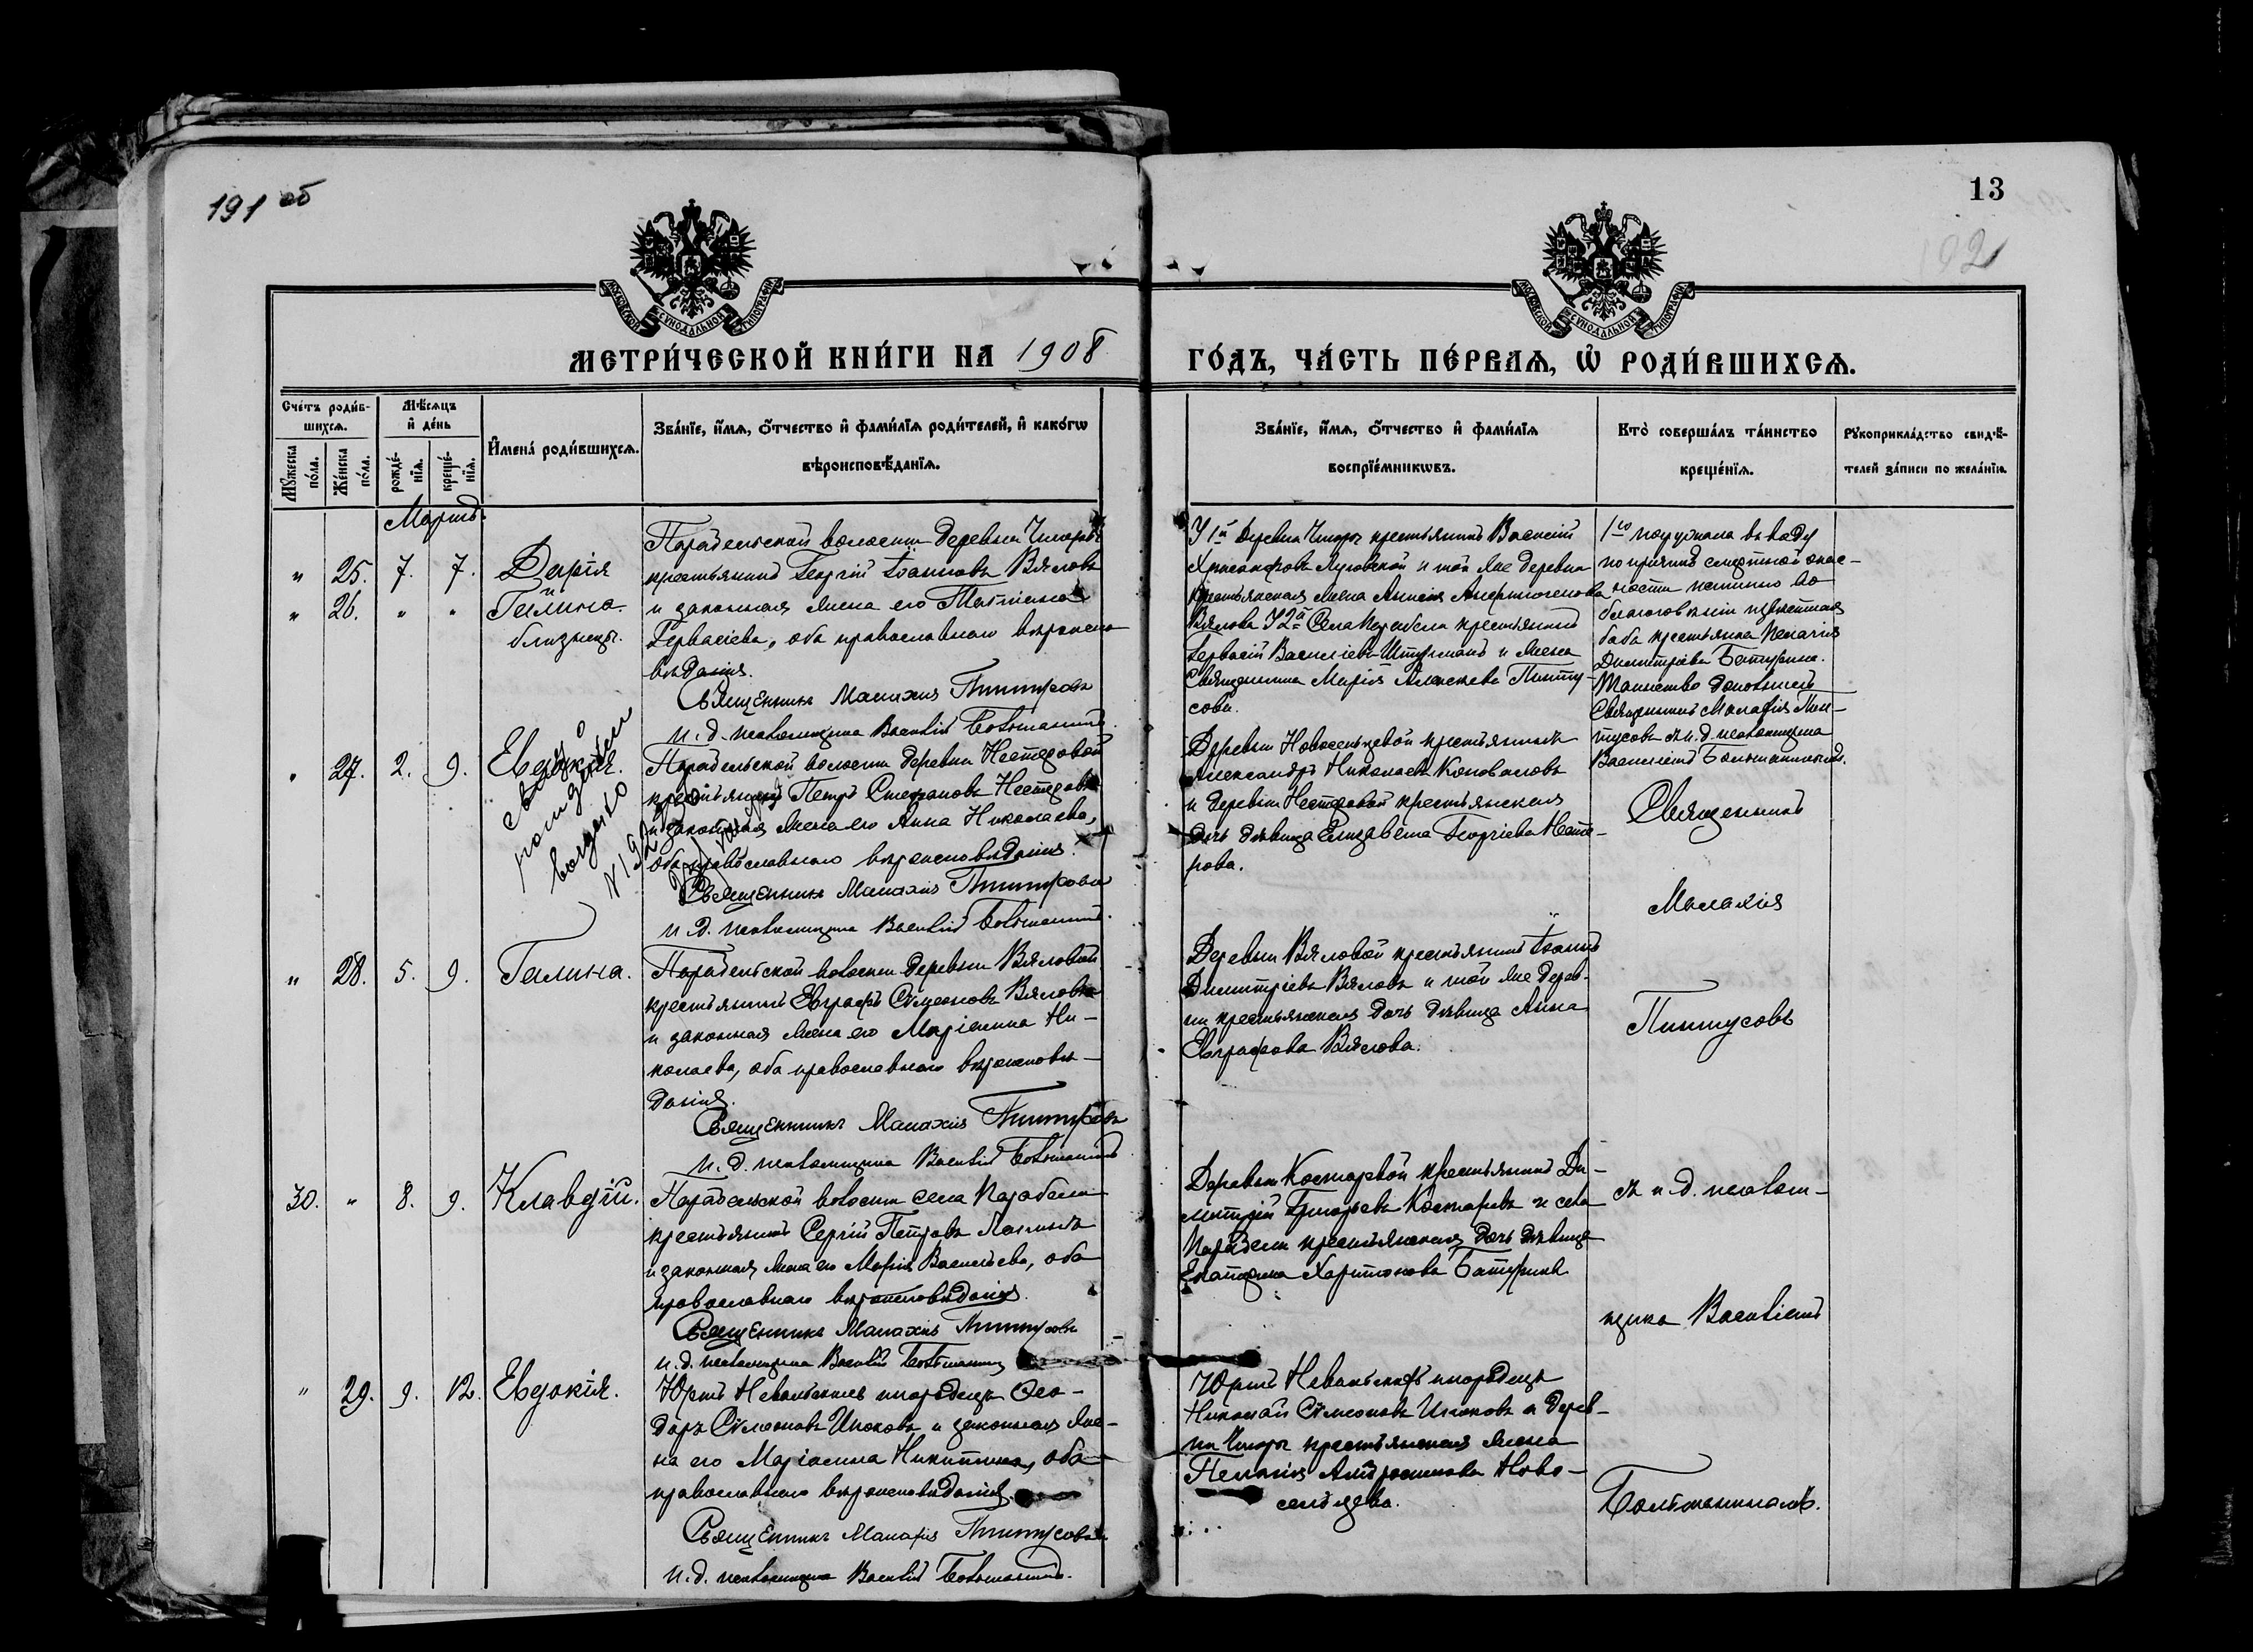 191 об
13
192
МОСКОВСКОЙ СѴНОДАЛЬНОЙ ТИПОГРАФІИ
МОСКОВСКОЙ СѴНОДАЛЬНОЙ ТИПОГРАФІИ
МЕТРИ́ЧЕСКОЙ КНИ́ГИ НА 1908
ГО́ДЪ, ЧА́СТЬ ПЕ́РВАѦ, Ѡ҆ РОДИ́ВШИХСѦ.
Сче́тъ роди́в-
шихсѧ.
Мꙋ́жеска по́ла.
Же́нска по́ла.
Мѣ́сѧцъ
и҆ де́нь
рожде́-нїѧ.
креще́-нїѧ.
И҆мена̀ роди́вшихсѧ.
Зва́нїе, и҆́мѧ, ѻ҆́тчество и҆ фамі́лїѧ роди́телей, и҆ како́гѡ
вѣроисповѣ́данїѧ.
Зва́нїе, и҆́мѧ, ѻ҆́тчество и҆ фамі́лїѧ
воспрїе́мникѡвъ.
Кто̀ соверша́лъ та́инство
креще́нїѧ.
Рꙋкоприкла́дство свидѣ́-
телей за́писи по жела́нїю.
Мартъ.
" 25. 7. 7. Дарія
и
" 26. " " Галина.
близнецы.
Парабельской волости деревни Чигары
крестьянинъ Георгій Іоанновъ Вяловъ
и законная жена его Татіана
Гервасіева, оба православнаго вѣроиспо-
вѣданія.
Священникъ Малахія Пинтусовъ
и. д. псаломщика Василій Большанинъ.
У 1й деревни Чигары крестьянинъ Василій
Хрисанфовъ Луговской и той же деревни
крестьянская жена Анисія Анфиногенова
Вялова У 2й Села Парабели крестьянинъ
Гервасій Василіевъ Штурманъ и жена
Священника Марія Алексѣева Пинту-
сова.
1го погружала въ воду
по причинѣ смертной опас-
ности
баба крестьянка Пелагія
Димитріева Батурина.
Таинство дополнилъ
Священникъ Малафія Пин-
тусовъ съ и. д. псаломщика
Василіемъ Большанинымъ.
" 27. 2. 9. Евдокія.
Парабельской волости деревни Нестеровой
крестьянинъ Петръ Стефановъ Нестеровъ
и законная жена его Анна Николаева,
оба православнаго вѣроисповѣданія.
Священникъ Малахія Пинтусовъ
и. д. псаломщика Василій Большанинъ.
Деревни Новосельцевой крестьянинъ
Александръ Николаевъ Коноваловъ
и деревни Нестеровой крестьянская
дочь дѣвица Елизавета Георгіева Несте-
рова.
Священникъ
Малахія
" 28. 5. 9. Галина.
Парабельской волости деревни Вяловой
крестьянинъ Евграфъ Сѵмеоновъ Вяловъ
и законная жена его Маріанна Ни-
колаева, оба православнаго вѣроисповѣ-
данія.
Священникъ Малахія Пинтусовъ
и. д. псаломщика Василій Большанинъ
Деревни Вяловой крестьянинъ Іоаннъ
Димитріевъ Вяловъ и той же дерев-
ни крестьянская дочь дѣвица Анна
Евграфова Вялова.
Пинтусовъ
30. " 8. 9. Клавдій.
Парабельской волости села Парабели
крестьянинъ Сергій Петровъ
и законная жена его Марія Васильева, оба
православнаго вѣроисповѣданія.
Священникъ Малахія Пинтусовъ
и. д. псаломщика Василій Большанинъ
Деревни Костаревой крестьянинъ Ди-
митрій Григорьевъ Костаревъ и села
Парабели крестьянская дочь дѣвица
Екатерина Харитонова Батурина
съ и. д. псалом-
щика Василіемъ
" 29. 9. 12. Евдокія.
Юртъ Невальскихъ инородецъ Ѳео-
доръ Сѵмеоновъ и законная же-
на его Маріанна Никитина, оба
православнаго вѣроисповѣданія.
Священникъ Малафія Пинтусовъ
и. д. псаломщика Василій Большанинъ.
Юртъ Невальскихъ инородецъ
Николай Сѵмеоновъ и дерев-
ни Чигары крестьянская жена
Пелагія Ново-
сельцева.
Большанинымъ.